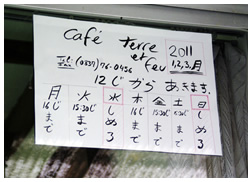 Café Terre
et Feu
2011
1,2,3,月
Tel
Fax (0837) 76-0456
12じから あきます。
月 16じまで
火 15:30じまで
水 しめる
木 16じまで
金 15:30じまで
土 じまで
日 しめる